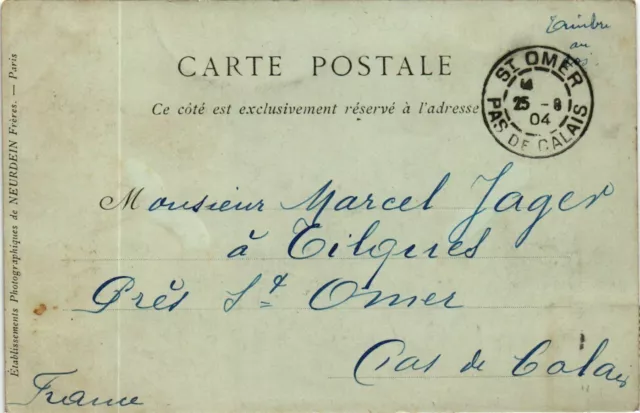 Timbre
au
CARTE POSTALE
Ce côté est exclusivement réservé à l'adresse
ST OMER
25 -8
04
PAS DE CALAIS
Monsieur Marcel Jager
à Tilques
Près St Omer
Pas de Calais
France
Établissements Photographiques de NEURDEIN Frères. — Paris